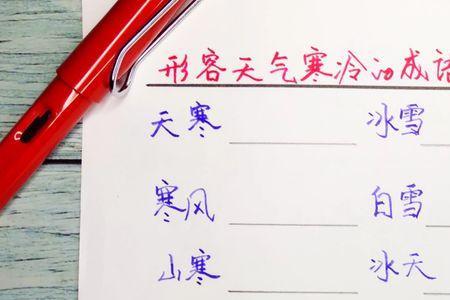 形容天气寒冷的成语
天寒 冰雪
寒风 白雪
山寒 冰天